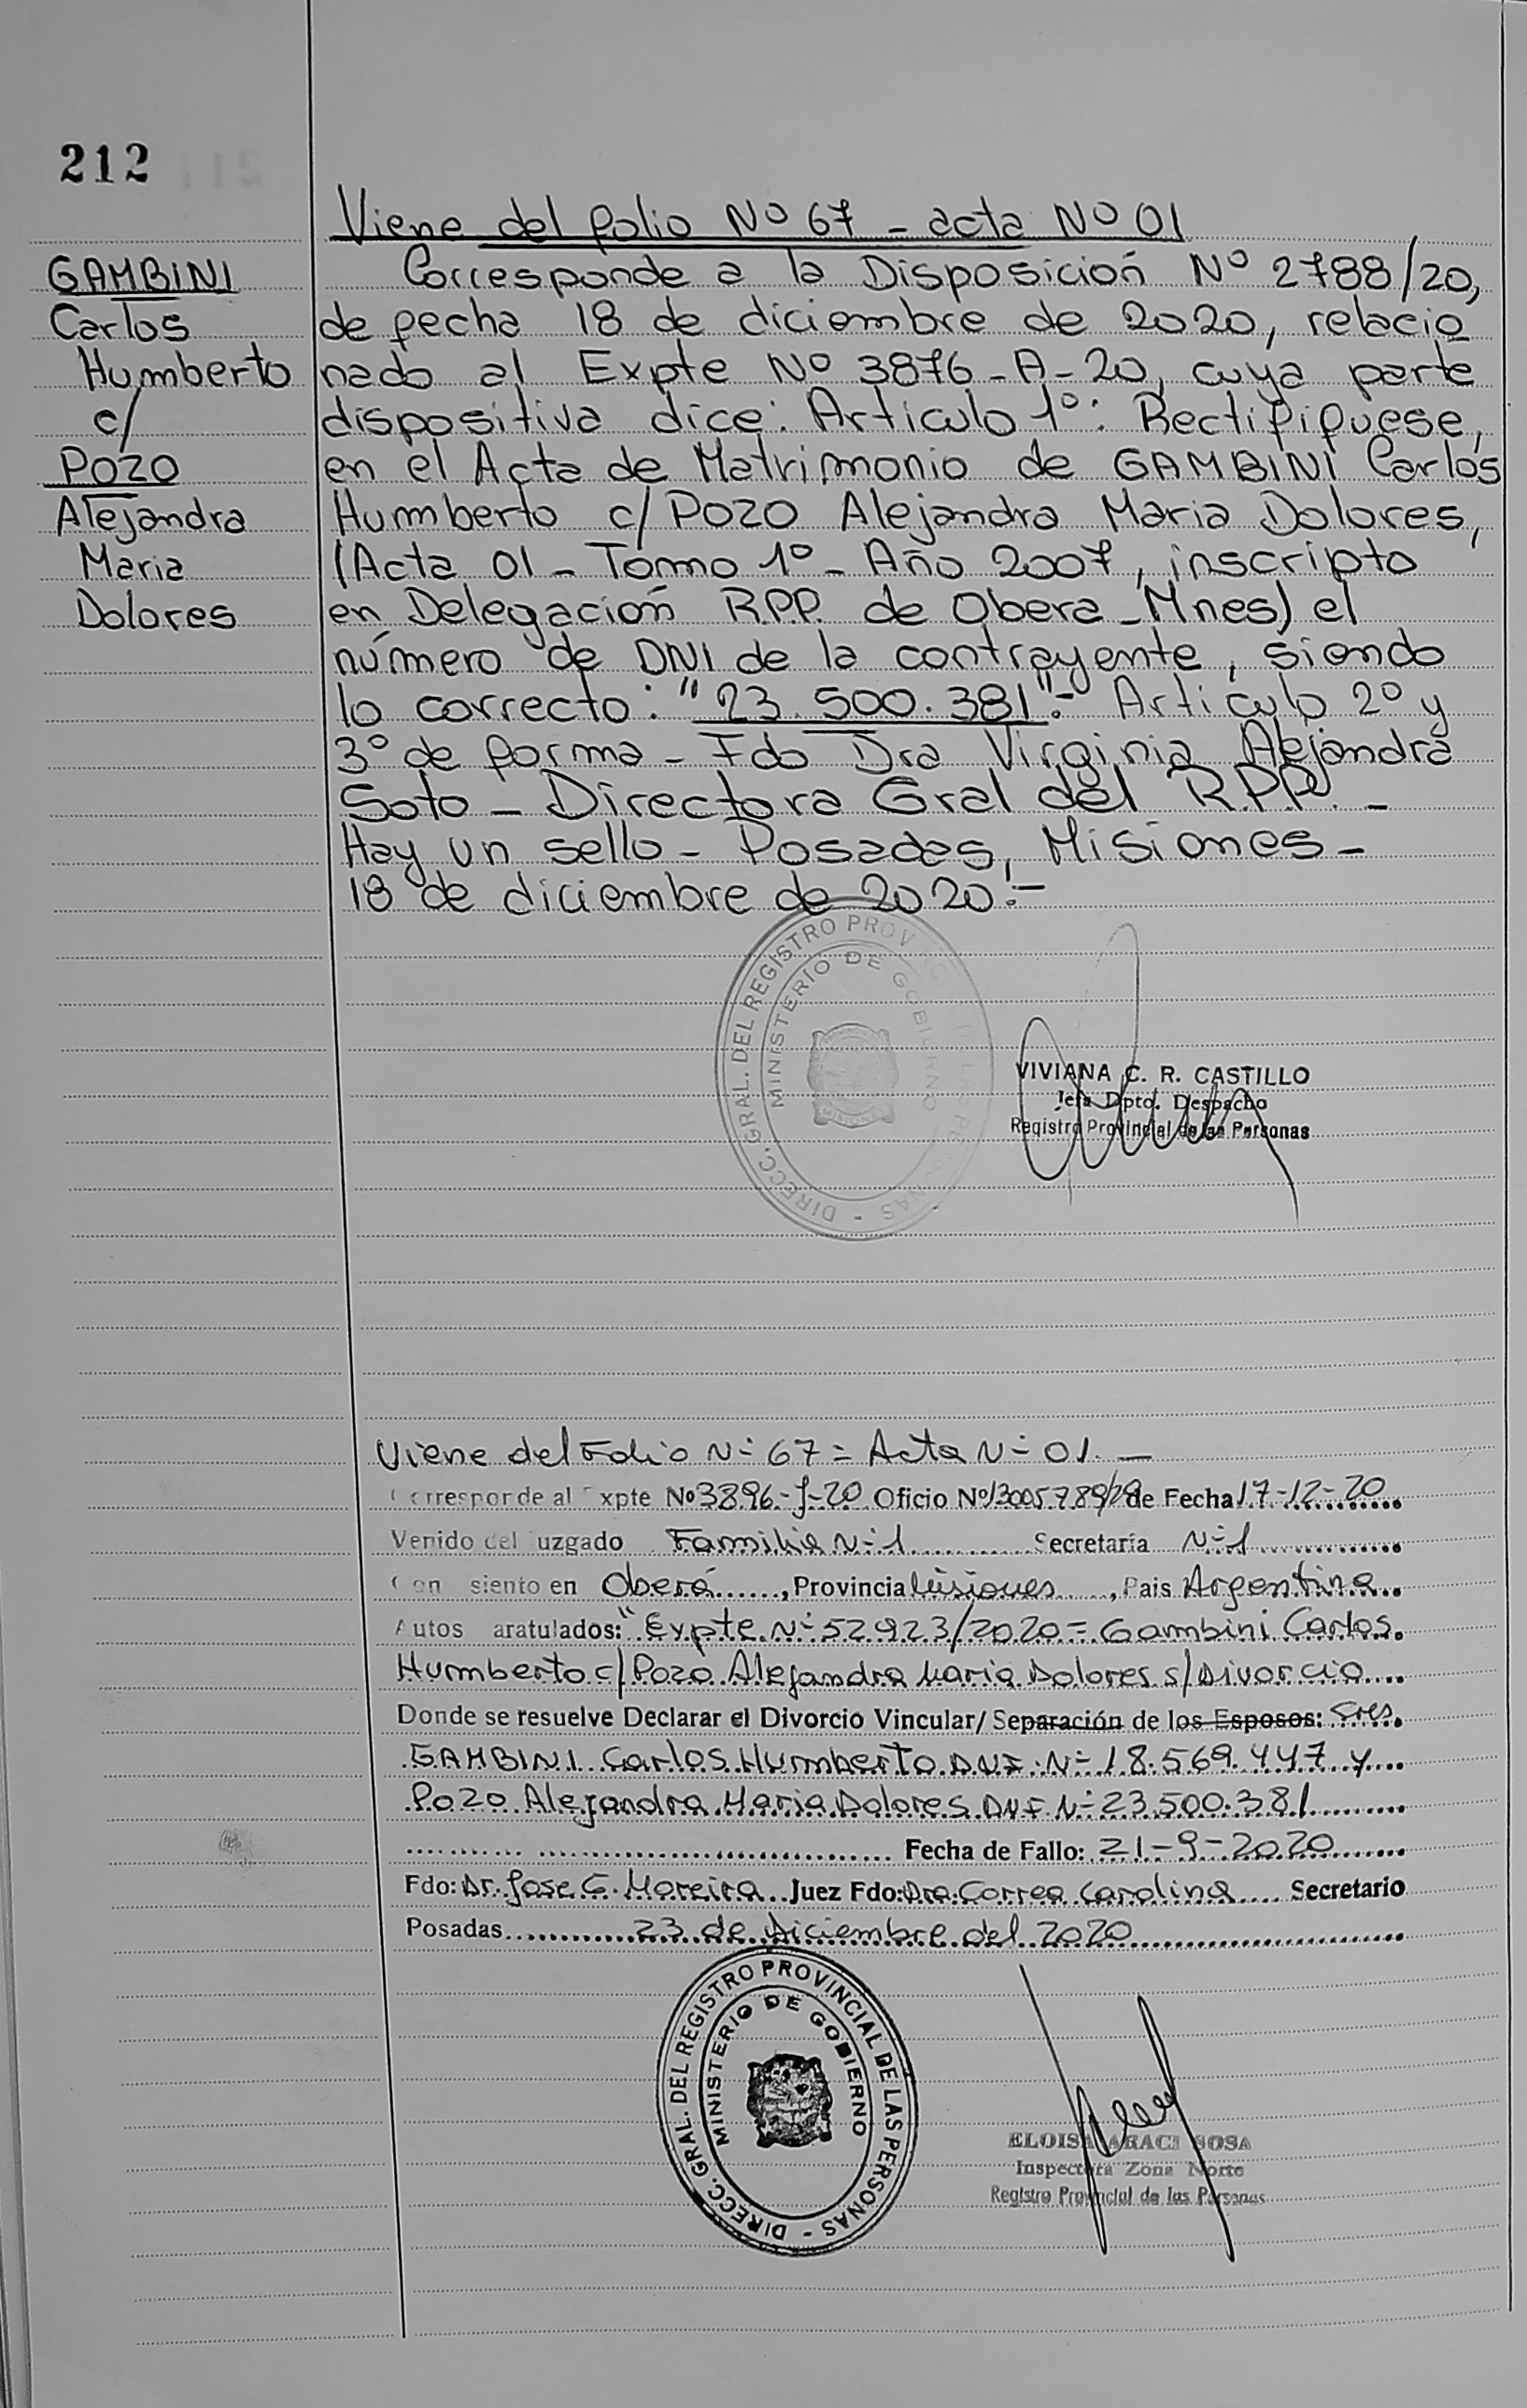 212
Viene del folio Nº 67 - acta Nº 01
GAMBINI
Carlos
Humberto
c/
POZO
Alejandra
Maria
Dolores
Corresponde a la Disposición Nº 2788/20,
de fecha 18 de diciembre de 2020, relacio
nado al Expte Nº 3876-A-20, cuya parte
dispositiva dice: Articulo 1º: Rectififuese,
en el Acta de Matrimonio de GAMBINI Carlos
Humberto c/ POZO Alejandra Maria Dolores,
(Acta 01 - Tomo 1º - Año 2007, inscripto
en Delegación R.P.P. de Obera - Mnes) el
número de DNI de la contrayente, siendo
lo correcto: "23.500.381".- Articulo 2º y
3º de forma - Fdo Dra Virginia Alejandra
Soto - Directora Gral del R.P.P. -
Hay un sello - Posadas, Misiones -
18 de diciembre de 2020.-
DIRECC. GRAL. DEL REGISTRO PROV
MINISTERIO DE GOBIERNO
MISIONES
VIVIANA C. R. CASTILLO
Jefa Dpto. Despacho
Registro Provincial de las Personas
Viene del Folio N- 67 = Acta N- 01. -
Corresponde al Expte Nº 3896-J-20 Oficio Nº 13005789/20 de Fecha 17-12-20
Venido del Juzgado Familia N-1 Secretaría N-1
Con siento en Oberá, Provincia Misiones, Pais Argentina
Autos aratulados: "Expte N- 52923/2020 = Gambini Carlos
Humberto c/ Pozo Alejandra Maria Dolores s/ Divorcio
Donde se resuelve Declarar el Divorcio Vincular/ Separación de los Esposos: Sres.
GAMBINI Carlos Humberto D.N.I. N- 18.569.447 y
Pozo Alejandra Maria Dolores DNI N- 23.500.381
Fecha de Fallo: 21-9-2020
Fdo: Dr. Jose G. Moreira Juez Fdo: Dra. Correa Carolina Secretario
Posadas 23 de Diciembre del 2020
DIRECC. GRAL. DEL REGISTRO PROVINCIAL DE LAS PERSONAS -
MINISTERIO DE GOBIERNO
ELOISA ARACI SOSA
Inspectora Zona Norte
Registro Provincial de las Personas